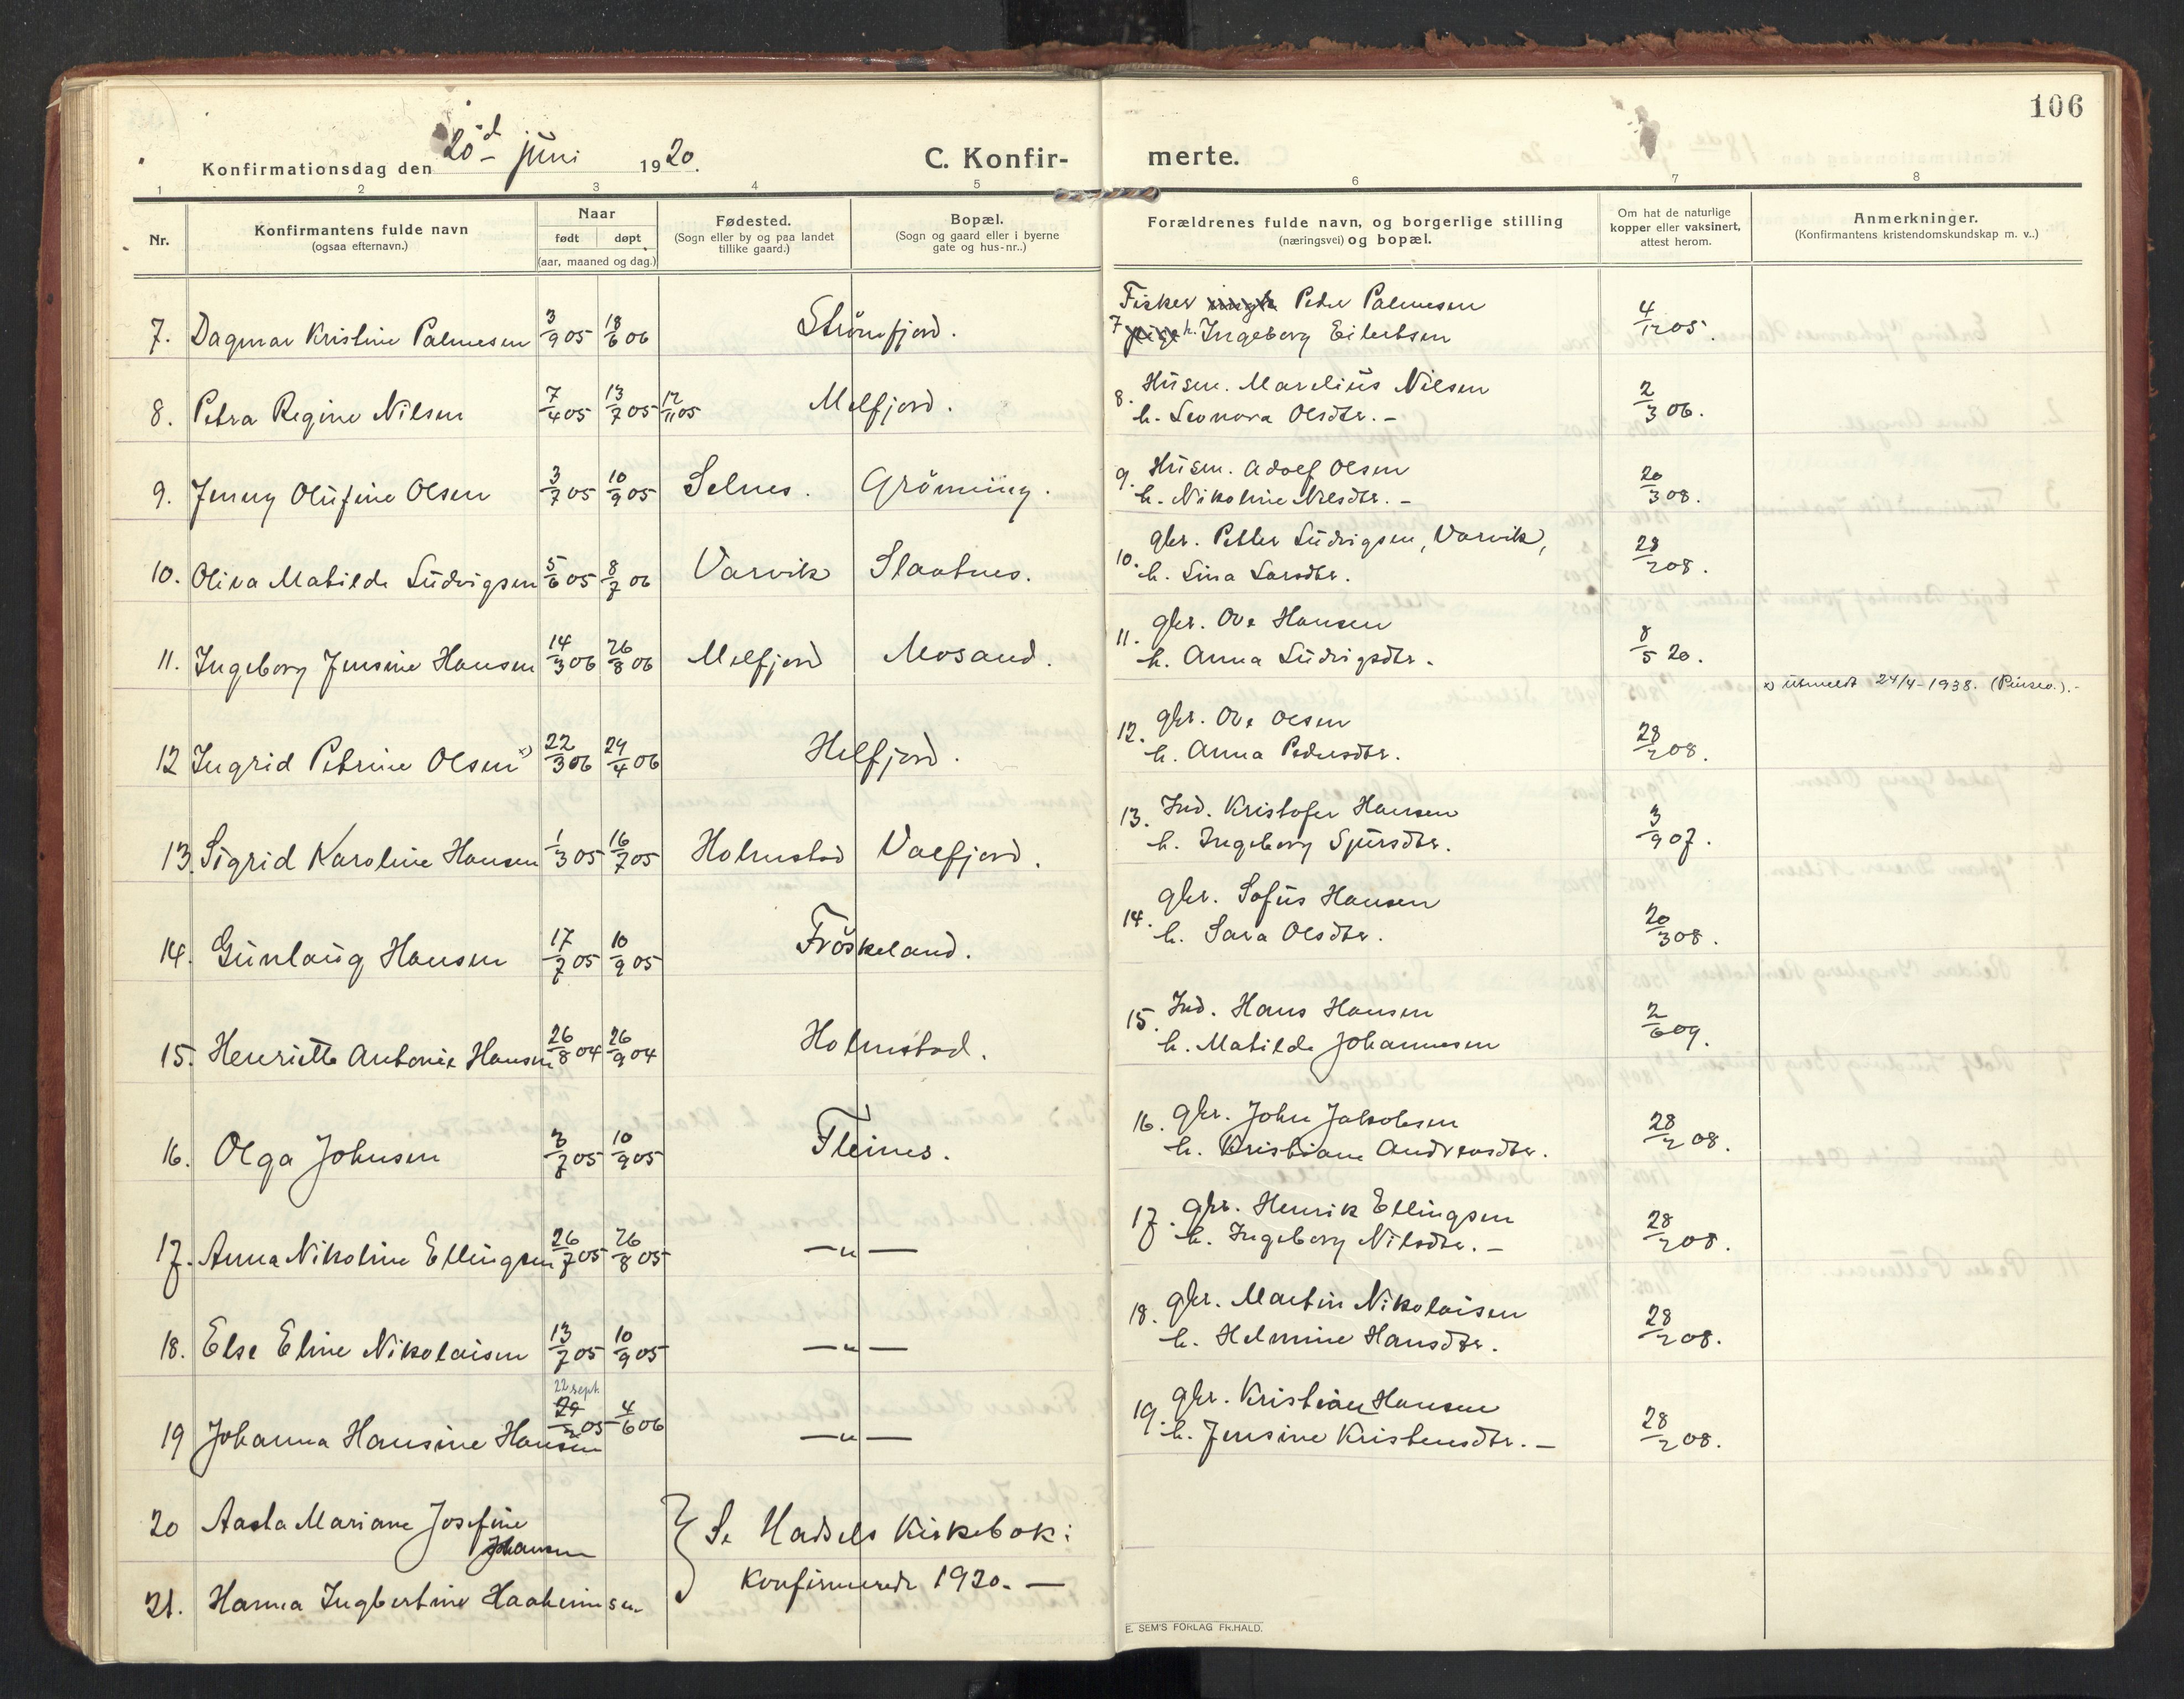 106
Konfirmationsdag den 20d juni 1920.
C. Konfirmerte.
1 2 3 4 5 6 7 8
Nr.
Konfirmantens fulde navn
(ogsaa efternavn.)
Naar
født døpt
(aar, maaned og dag.)
Fødested.
(Sogn eller by og paa landet
tillike gaard.)
Bopæl.
(Sogn og gaard eller i byerne
gate og hus-nr..)
Forældrenes fulde navn, og borgerlige stilling
(næringsvei) og bopæl.
Om hat de naturlige
kopper eller vaksinert,
attest herom.
Anmerkninger.
(Konfirmantens kristendomskundskap m. v..)
7. Dagmar Kristine Palmesen 3/9 05 18/6 06 Strømfjord. Fisker Peder Palmesen
7 h. Ingeborg Eilertsen 4/12 05.
8. Petra Regine Nilsen 7/4 05 13/7 05 12/11 05 Melfjord. 8. Husm. Marelius Nilsen
h. Leonora Olsdtr. – 2/3 06.
9. Jenny Olufine Olsen 3/7 05 10/9 05 Selnes. Grönning. 9. Husm. Adolf Olsen
h. Nikoline Nilsdtr. – 20/3 08.
10. Oliva Matilde Ludvigsen 5/6 05 8/7 06 Varvik Slaatnes. 10. gbr. Petter Ludvigsen, Varvik,
h. Lina Larsdtr. 28/2 08.
11. Ingeborg Jensine Hansen 14/3 06 26/8 06 Melfjord Mosand. 11. gbr. Ove Hansen
h. Anna Ludvigsdtr. 8/5 20.
x) utmeldt 24/4-1938. (Pinsev.).-
12 Ingrid Petrine Olsen x) 22/3 06 29/4 06 Helfjord. 12. gbr. Ove Olsen
h. Anna Pedersdtr. 28/2 08.
13. Sigrid Karoline Hansen 1/3 05 16/7 05 Holmstad Valfjord. 13. Ind. Kristofer Hansen
h. Ingeborg Sjursdtr. 3/9 07.
14. Gunlaug Hansen 17/7 05 10/9 05 Fröskeland. 14. gbr. Sofus Hansen
h. Sara Olsdtr. 20/3 08.
15. Henriette Antonie Hansen 26/8 04 26/9 04 Holmstad. 15. Ind. Hans Hansen
h. Matilde Johannesen 2/6 09.
16. Olga Johnsen 3/7 05 10/9 05 Fleines. 16. gbr. John Jakobsen
h. Kristiane Andreasdtr. 28/2 08.
17. Anna Nikoline Ellingsen 26/7 05 26/8 05 —„— 17. gbr. Henrik Ellingsen
h. Ingeborg Nilsdtr. – 28/2 08.
18. Else Eline Nikolaisen 13/7 05 10/9 05 —„— 18. gbr. Martin Nikolaisen
h. Helmine Hansdtr. 28/2 08.
22 sept.
19 Johanna Hansine Hansen 05 4/6 06 —„— 19. gbr. Kristian Hansen
h. Jensine Kristensdtr. – 28/2 08.
20 Aasta Mariane Josefine
Johansen
Se Hadsels Kirkebok:
21. Hanna Ingbertine Haakensen
Konfirmerede 1920. —
E. SEM'S FORLAG FR.HALD.